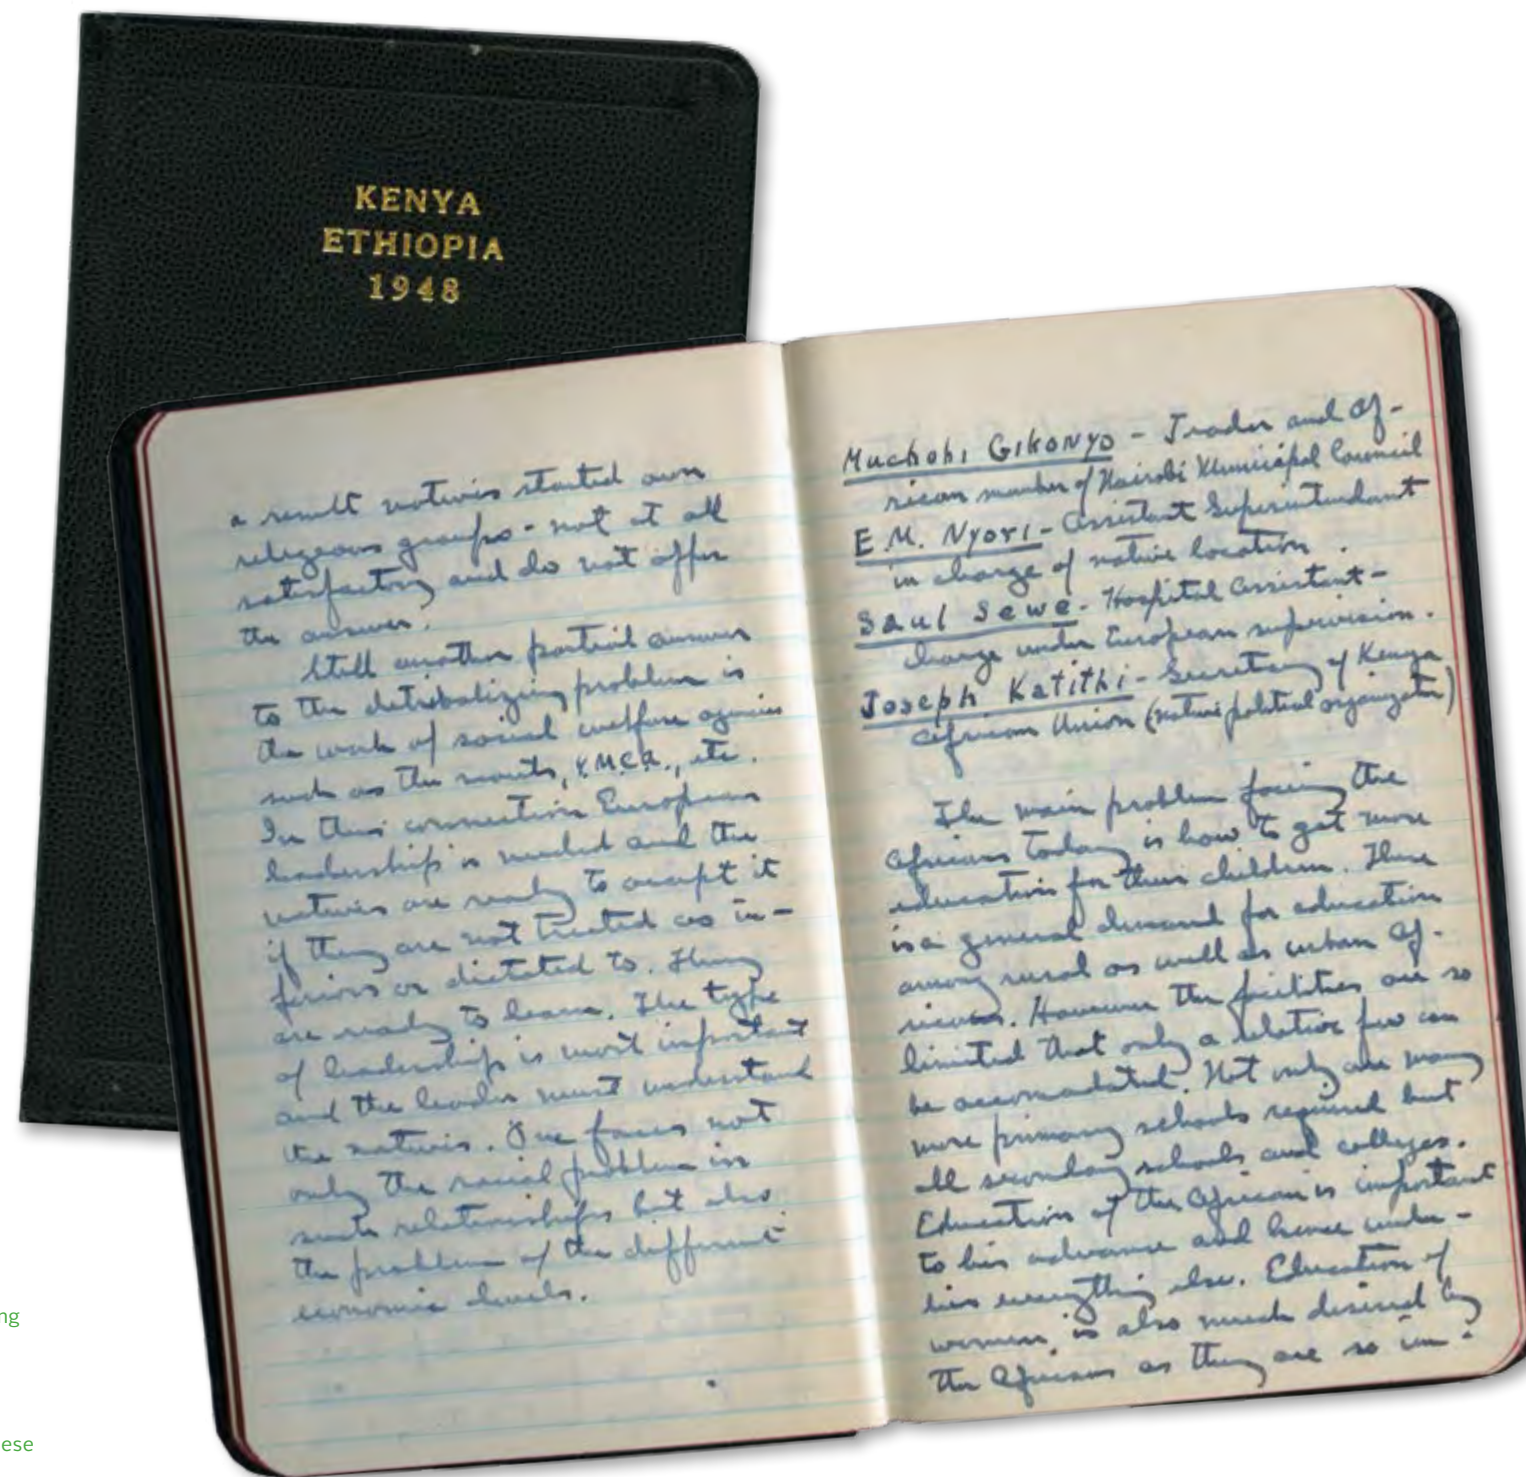 KENYA
ETHIOPIA
1948
a result natives started own
religeous groups - not at all
satisfactory and do not offer
the answer.
Still another partial answer
to the detribalizing problem is
the work of social welfare agencies
such as the scouts, Y.M.C.A., etc.
In this connection European
leadership is needed and the
natives are ready to accept it
if they are not treated as in-
feriors or dictated to. They
are ready to learn. The type
of leadership is most important
and the leader must understand
the natives. One faces not
only the racial problem in
such relationships but also
the problem of the different
economic levels.
Muchohi Gikonyo - Trader and Af-
rican member of Nairobi Municipal Council
E.M. Nyori - Assistant Superintendant
in charge of native location.
Saul Sewe - Hospital Assistant -
charge under European supervision.
Joseph Katithi - Secretary of Kenya
African Union (native political organization)
The main problem facing the
Africans today is how to get more
education for their children. There
is a general demand for education
among rural as well as urban Af-
ricans. However the facilities are so
limited that only a relative few can
be accomodated. Not only are many
more primary schools required but
all secondary schools and colleges.
Education of the African is important
to his advance and hence under-
lies everything else. Education of
women is also much desired by
the Africans as they are so im-
ng
ese